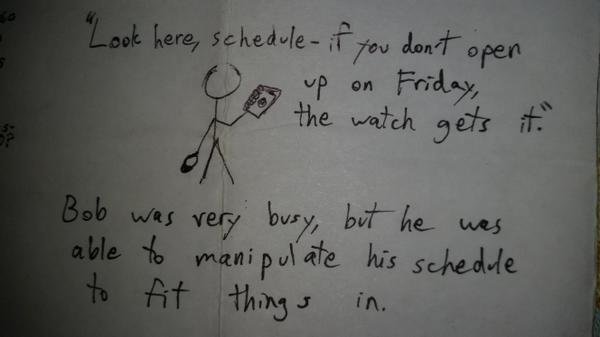 "Look here, schedule - if you don't open
up on Friday,
the watch gets it."
Bob was very busy, but he was
able to manipulate his schedule
to fit things in.